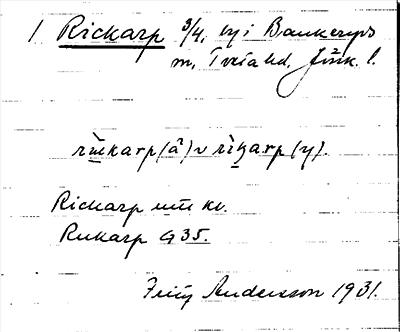 1 Rickarp 3/4, by i Bankeryds
m, Tveta hd, Jönk. l.
rikarp (ä) ~ rikarp (y).
Rickarp kv.
Rukarp G 35.
Fritz Andersson 1931.